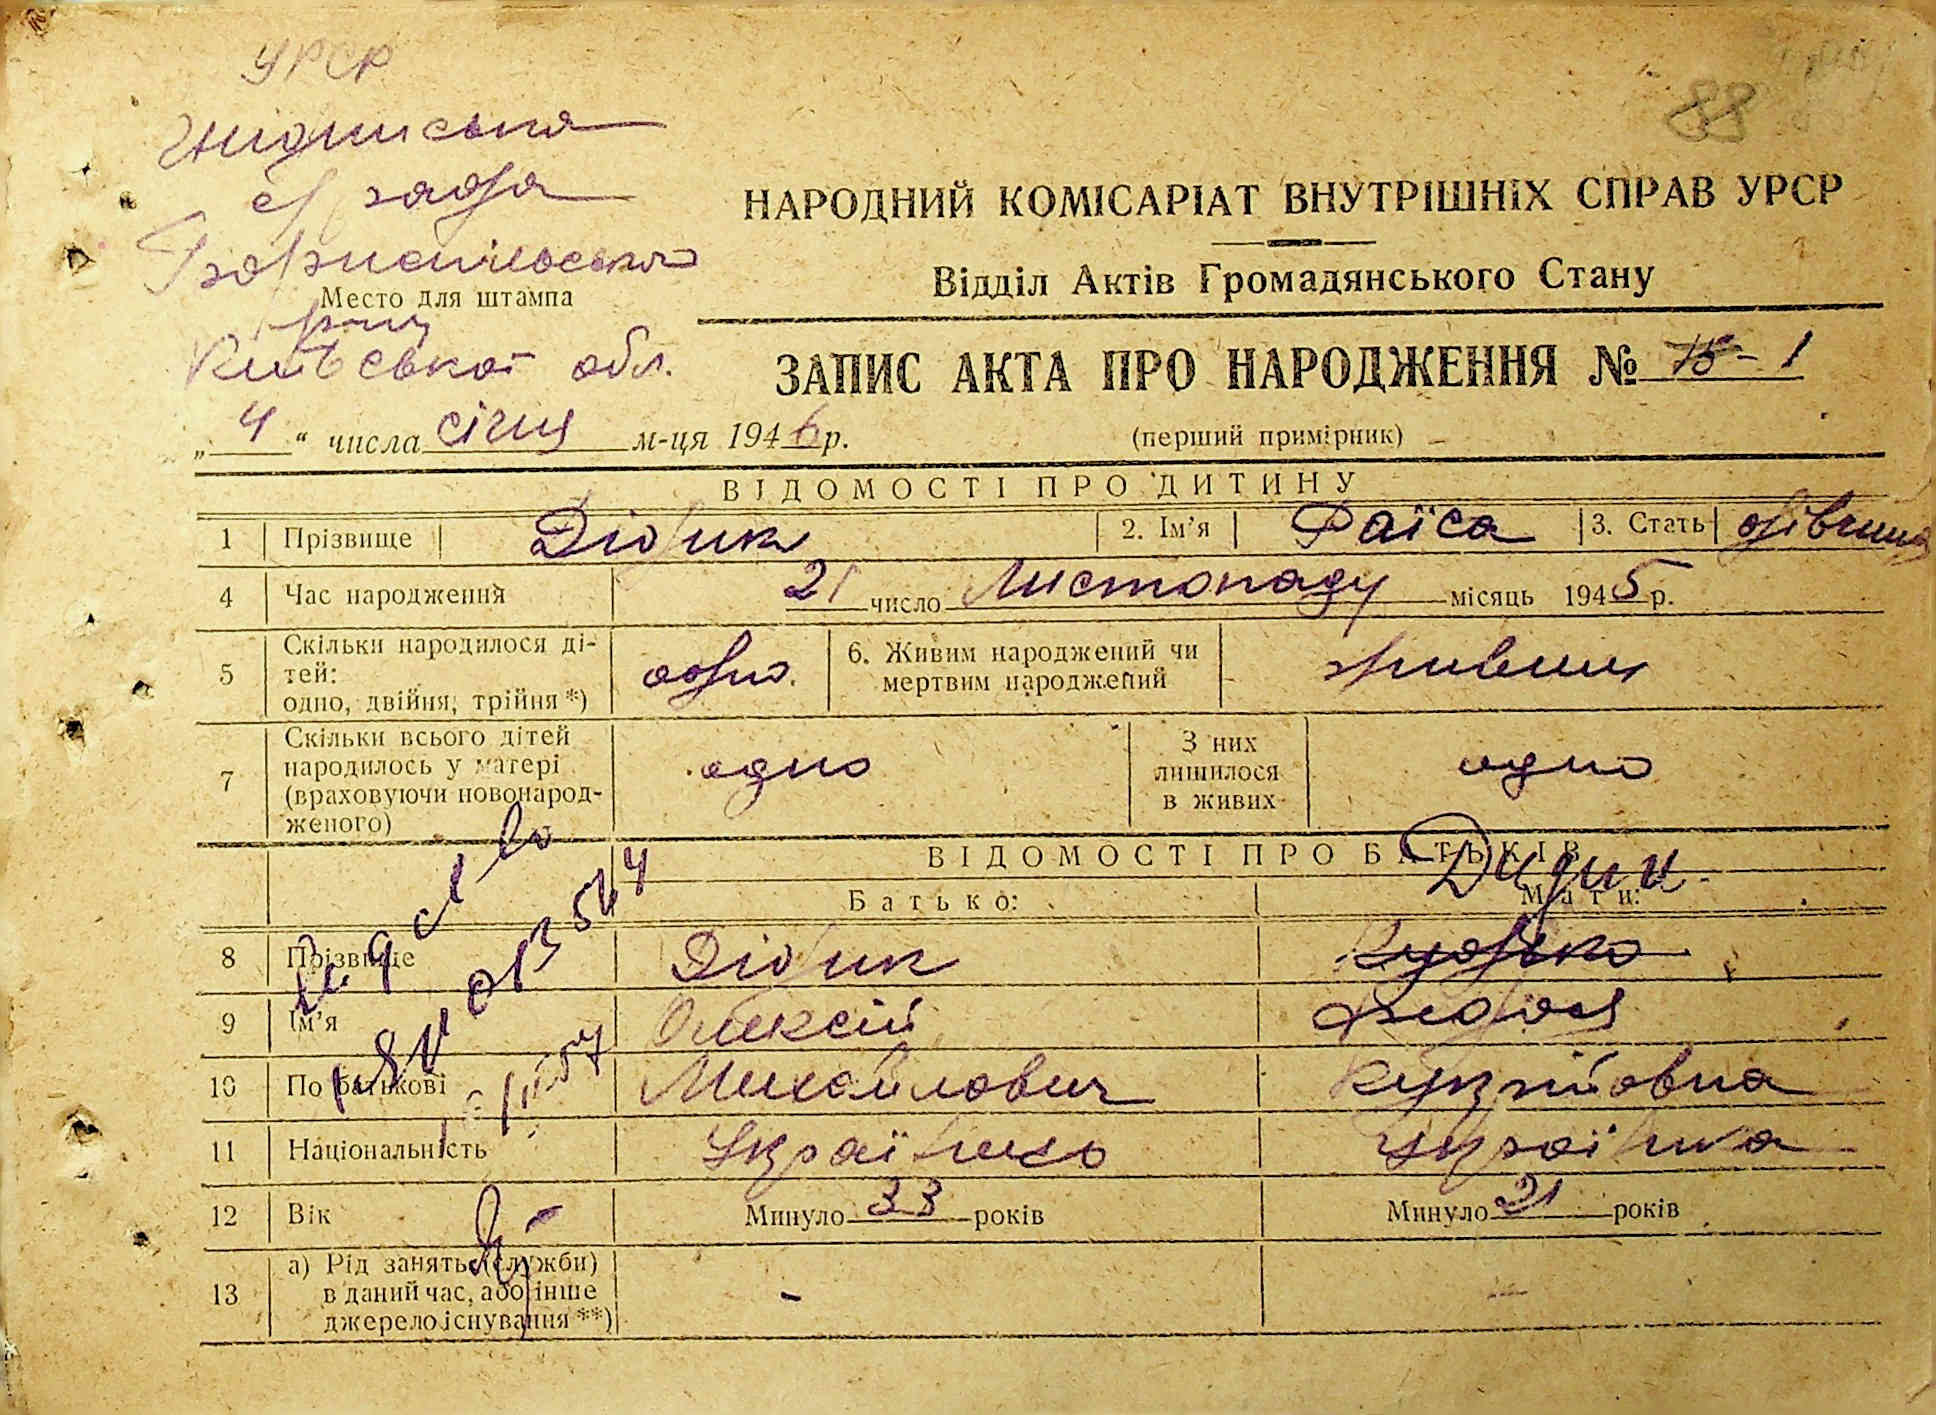 УРСР
88
с/рада
Бориспільського
Место для штампа
р-ну
Київської обл.
НАРОДНИЙ КОМІСАРІАТ ВНУТРІШНІХ СПРАВ УРСР
Відділ Актів Громадянського Стану
ЗАПИС АКТА ПРО НАРОДЖЕННЯ № 75 - 1
(перший примірник)
„ 4 “ числа січня м-ця 1946 р.
ВІДОМОСТІ ПРО ДИТИНУ
1 Прізвище Дідик 2. Ім'я Раїса 3. Стать дівчина
4 Час народження 21 число Листопаду місяць 1945 р.
5 Скільки народилося ді-
тей:
одно, двійня, трійня *) одно. 6. Живим народжений чи
мертвим народжений живим
7 Скільки всього дітей
народилось у матері
(враховуючи новонарод-
женого) одно З них
лишилося
в живих одно
ВІДОМОСТІ ПРО БАТЬКІВ
Батько: Мати:
Дидик
8 Прізвище Дідик
9 Ім'я Олексій Федора
10 По батькові Михайлович Кузьмівна
11 Національність Українець Українка
12 Вік Минуло 33 років Минуло 21 років
13 а) Рід занять (служби)
в даний час, або інше
джерело існування **) - -